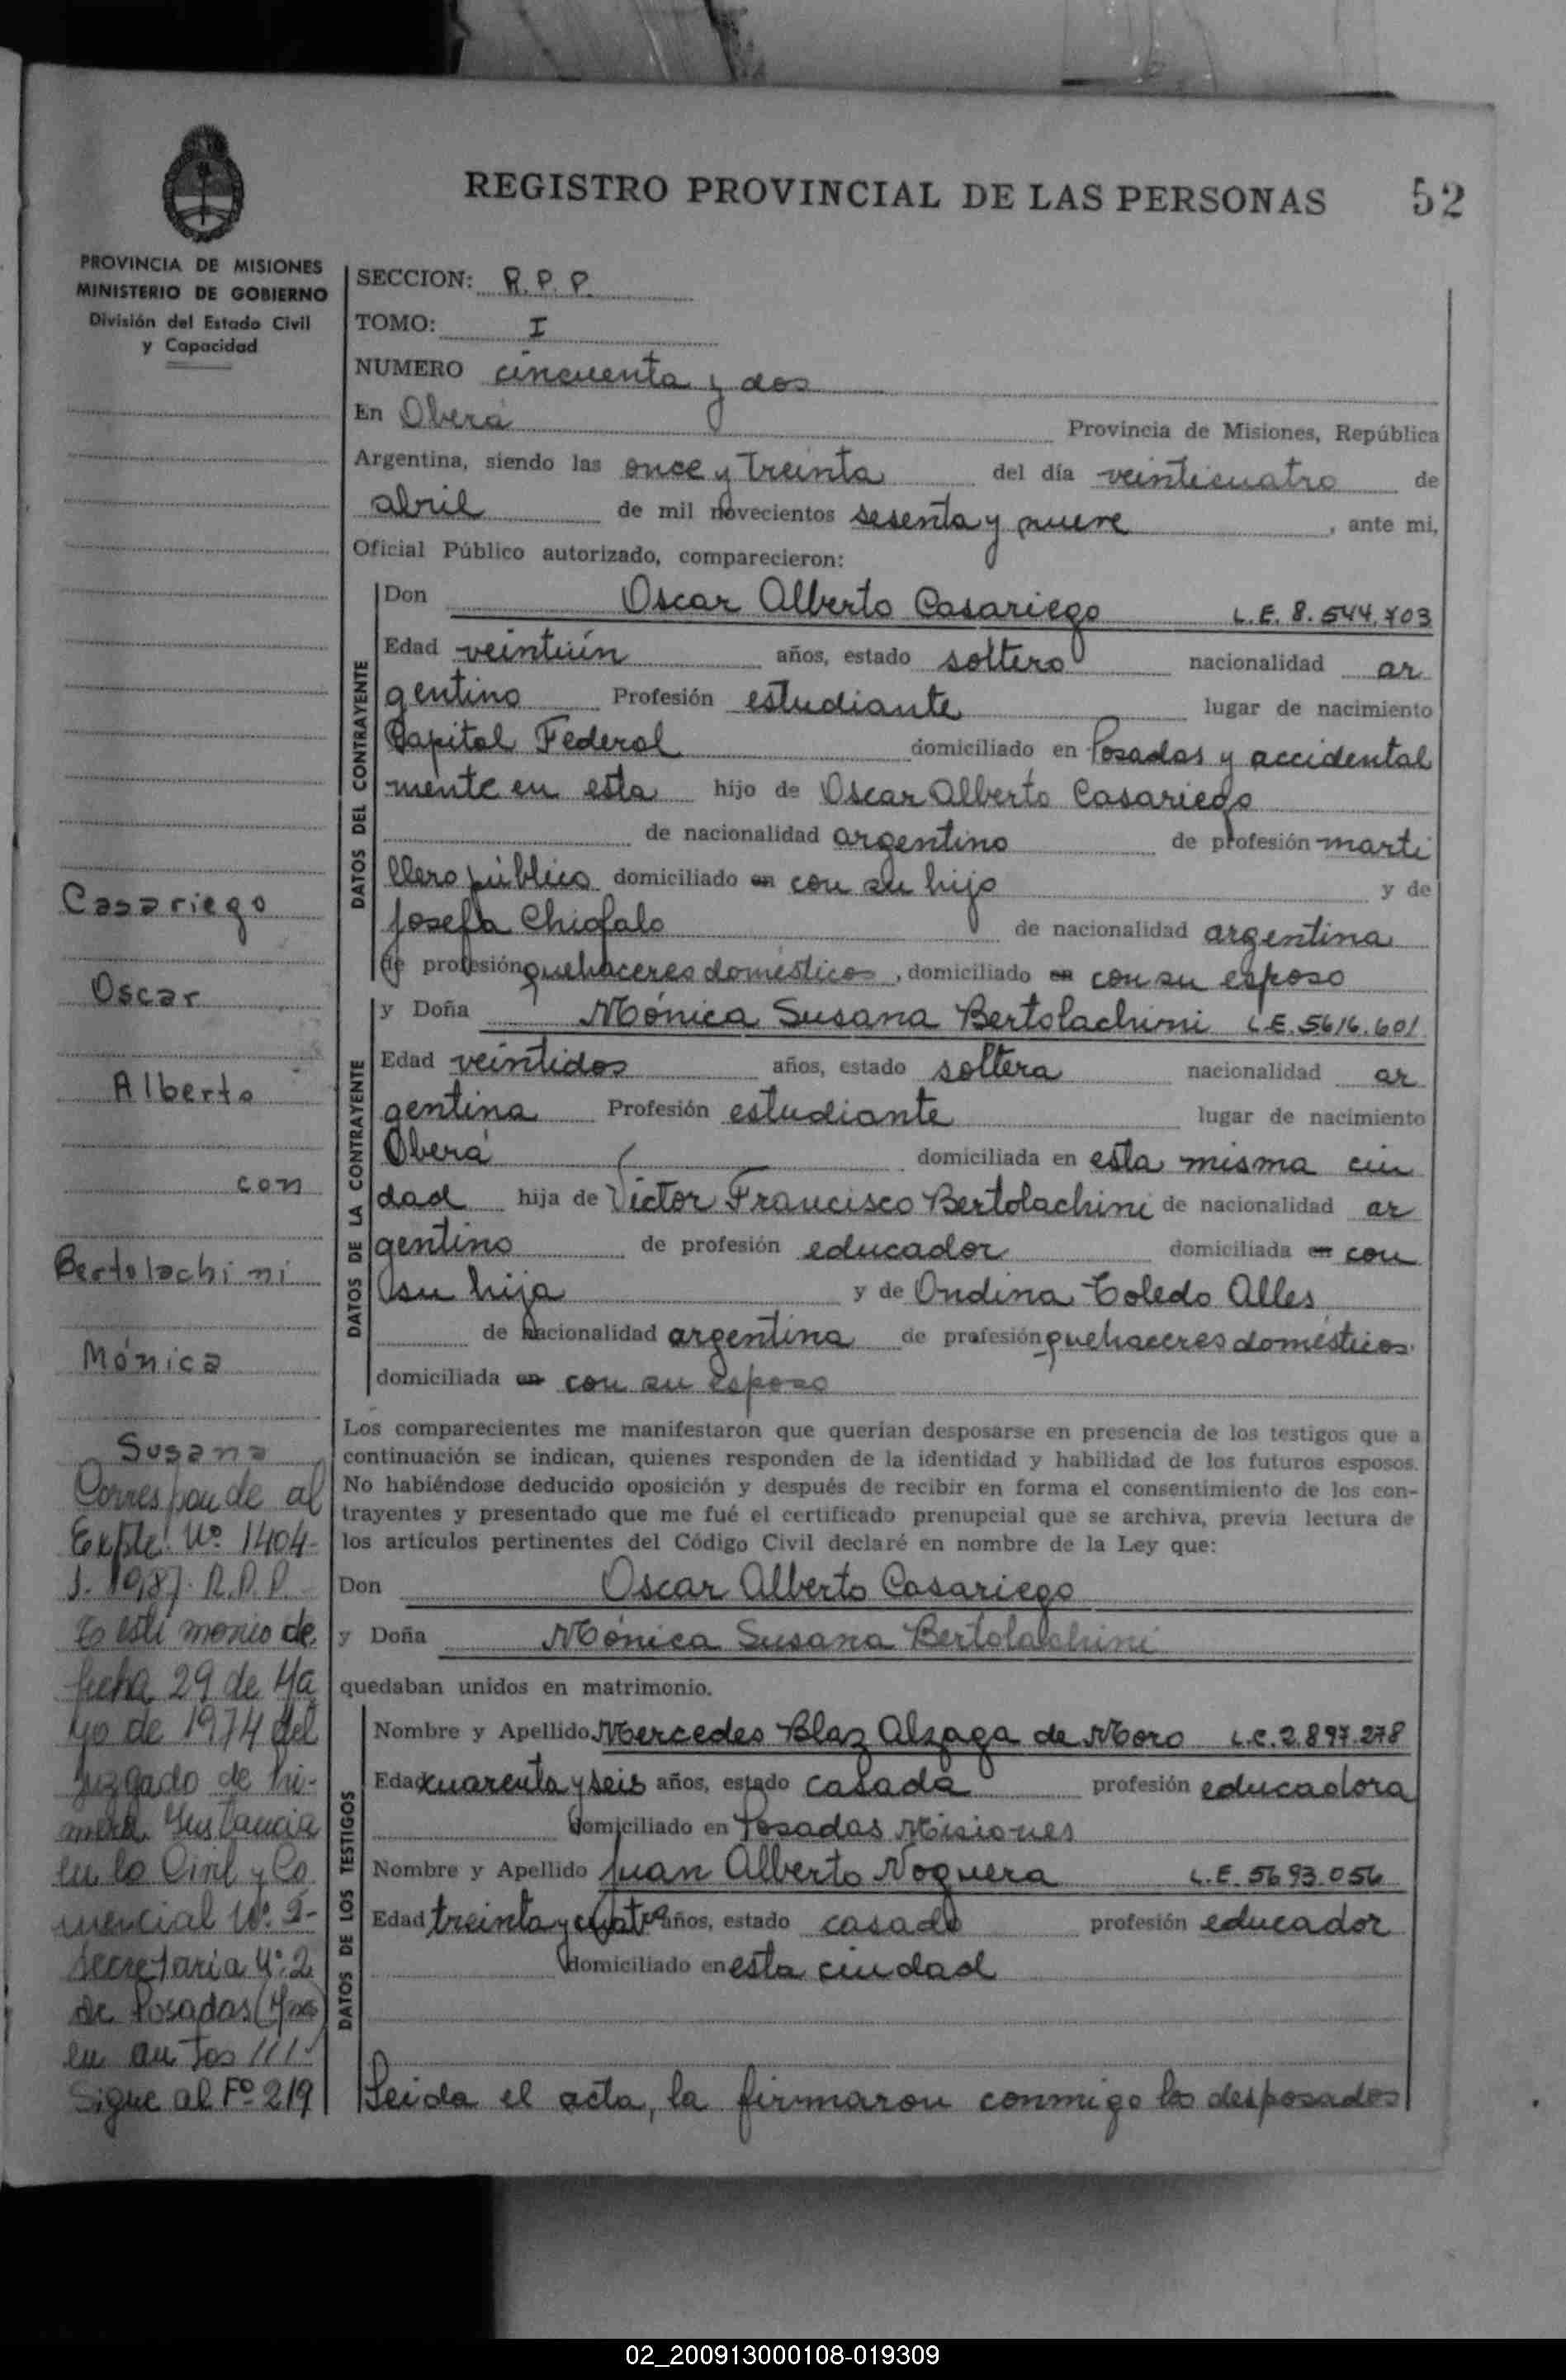 REGISTRO PROVINCIAL DE LAS PERSONAS 52
PROVINCIA DE MISIONES
MINISTERIO DE GOBIERNO
División del Estado Civil
y Capacidad
SECCION: R. P. P.
TOMO: I
NUMERO cincuenta y dos
En Oberá Provincia de Misiones, República
Argentina, siendo las once y treinta del día veinticuatro de
abril de mil novecientos sesenta y nueve, ante mi,
Oficial Público autorizado, comparecieron:
DATOS DEL CONTRAYENTE
Don Oscar Alberto Casariego L.E. 8.544.703
Edad veintiún años, estado soltero nacionalidad ar
gentino Profesión estudiante lugar de nacimiento
Capital Federal domiciliado en Posadas y accidental
mente en esta hijo de Oscar Alberto Casariego
de nacionalidad argentino de profesión marti
llero público domiciliado en con su hijo y de
Josefa Chiofalo de nacionalidad argentina
de profesión quehaceres domésticos, domiciliado en con su esposo
DATOS DE LA CONTRAYENTE
y Doña Mónica Susana Bertolachini L.E. 5616.601
Edad veintidos años, estado soltera nacionalidad ar
gentina Profesión estudiante lugar de nacimiento
Oberá domiciliada en esta misma ciu
dad hija de Víctor Francisco Bertolachini de nacionalidad ar
gentino de profesión educador domiciliada en con
su hija y de Ondina Toledo Alles
de nacionalidad argentina de profesión quehaceres domésticos
domiciliada en con su esposo
Los comparecientes me manifestaron que querían desposarse en presencia de los testigos que a
continuación se indican, quienes responden de la identidad y habilidad de los futuros esposos.
No habiéndose deducido oposición y después de recibir en forma el consentimiento de los con-
trayentes y presentado que me fué el certificado prenupcial que se archiva, previa lectura de
los artículos pertinentes del Código Civil declaré en nombre de la Ley que:
Don Oscar Alberto Casariego
y Doña Mónica Susana Bertolachini
quedaban unidos en matrimonio.
DATOS DE LOS TESTIGOS
Nombre y Apellido Mercedes Blaz Alzaga de Moro L.C. 2.897.278
Edad cuarenta y seis años, estado casada profesión educadora
domiciliado en Posadas Misiones
Nombre y Apellido Juan Alberto Noguera L.E. 5693.056
Edad treinta y cuatro años, estado casado profesión educador
domiciliado en esta ciudad
Leida el acta, la firmaron conmigo los desposados
Casariego
Oscar
Alberto
con
Bertolachini
Mónica
Susana
Corresponde al
Expte. Nº 1404-
R.P.P.
Testimonio de
fecha 29 de Ma
yo de 1974 del
Juzgado de Pri-
mera Instancia
en lo Civil y Co
mercial Nº
Secretaria Nº 2
de Posadas (Mnes)
en autos ///
Sigue al Fº 219
02_200913000108-019309